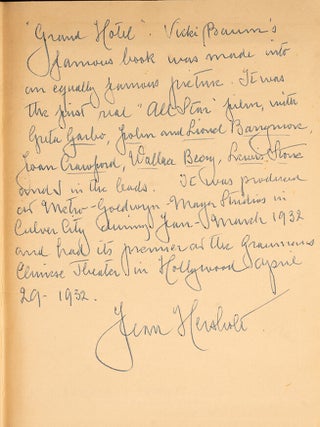 "Grand Hotel". Vicki Baum's
famous book was made into
an equally famous picture. It was
the first real "All Star" film, with
Greta Garbo, John and Lionel Barrymore,
Joan Crawford, Wallace Beery, Lewis Stone
and I in the leads. It was produced
at Metro-Goldwyn-Mayer Studios in
Culver City during Jan-March 1932
and had its premier at the Graumans
Chinese Theater in Hollywood April
29-1932.
Jean Hersholt